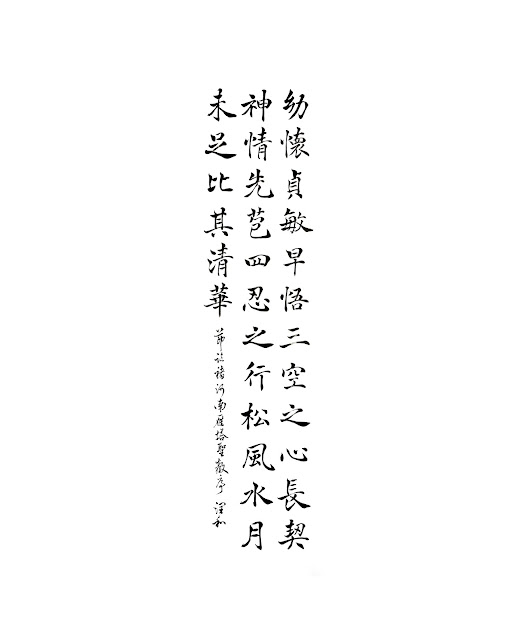 幼懷貞敏早悟三空之心長契
神情先苞四忍之行松風水月
未足比其清華
節臨褚河南雁塔聖教序